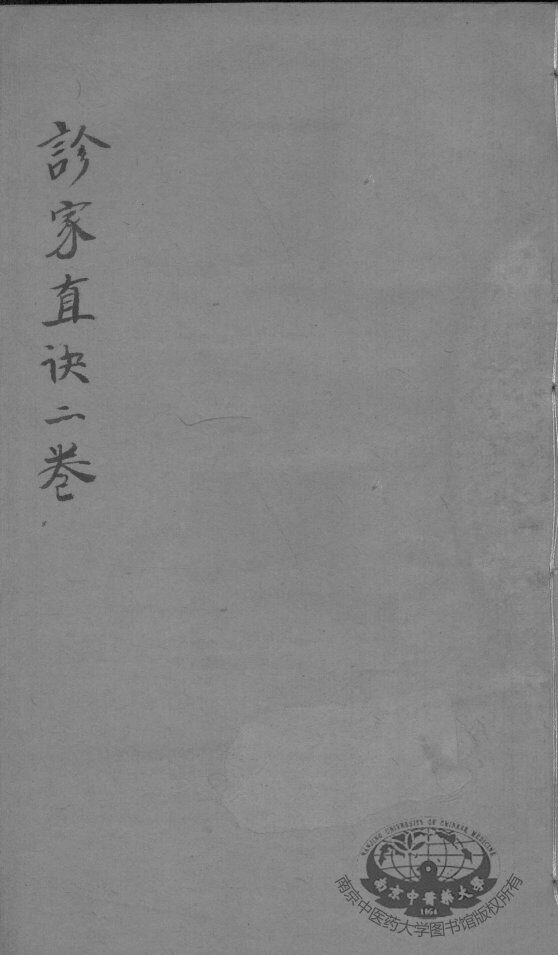 診家直诀二卷
NANJING UNIVERSITY OF CHINESE MEDICINE
南京中醫藥大學
1954
南京中医药大学图书馆版权所有